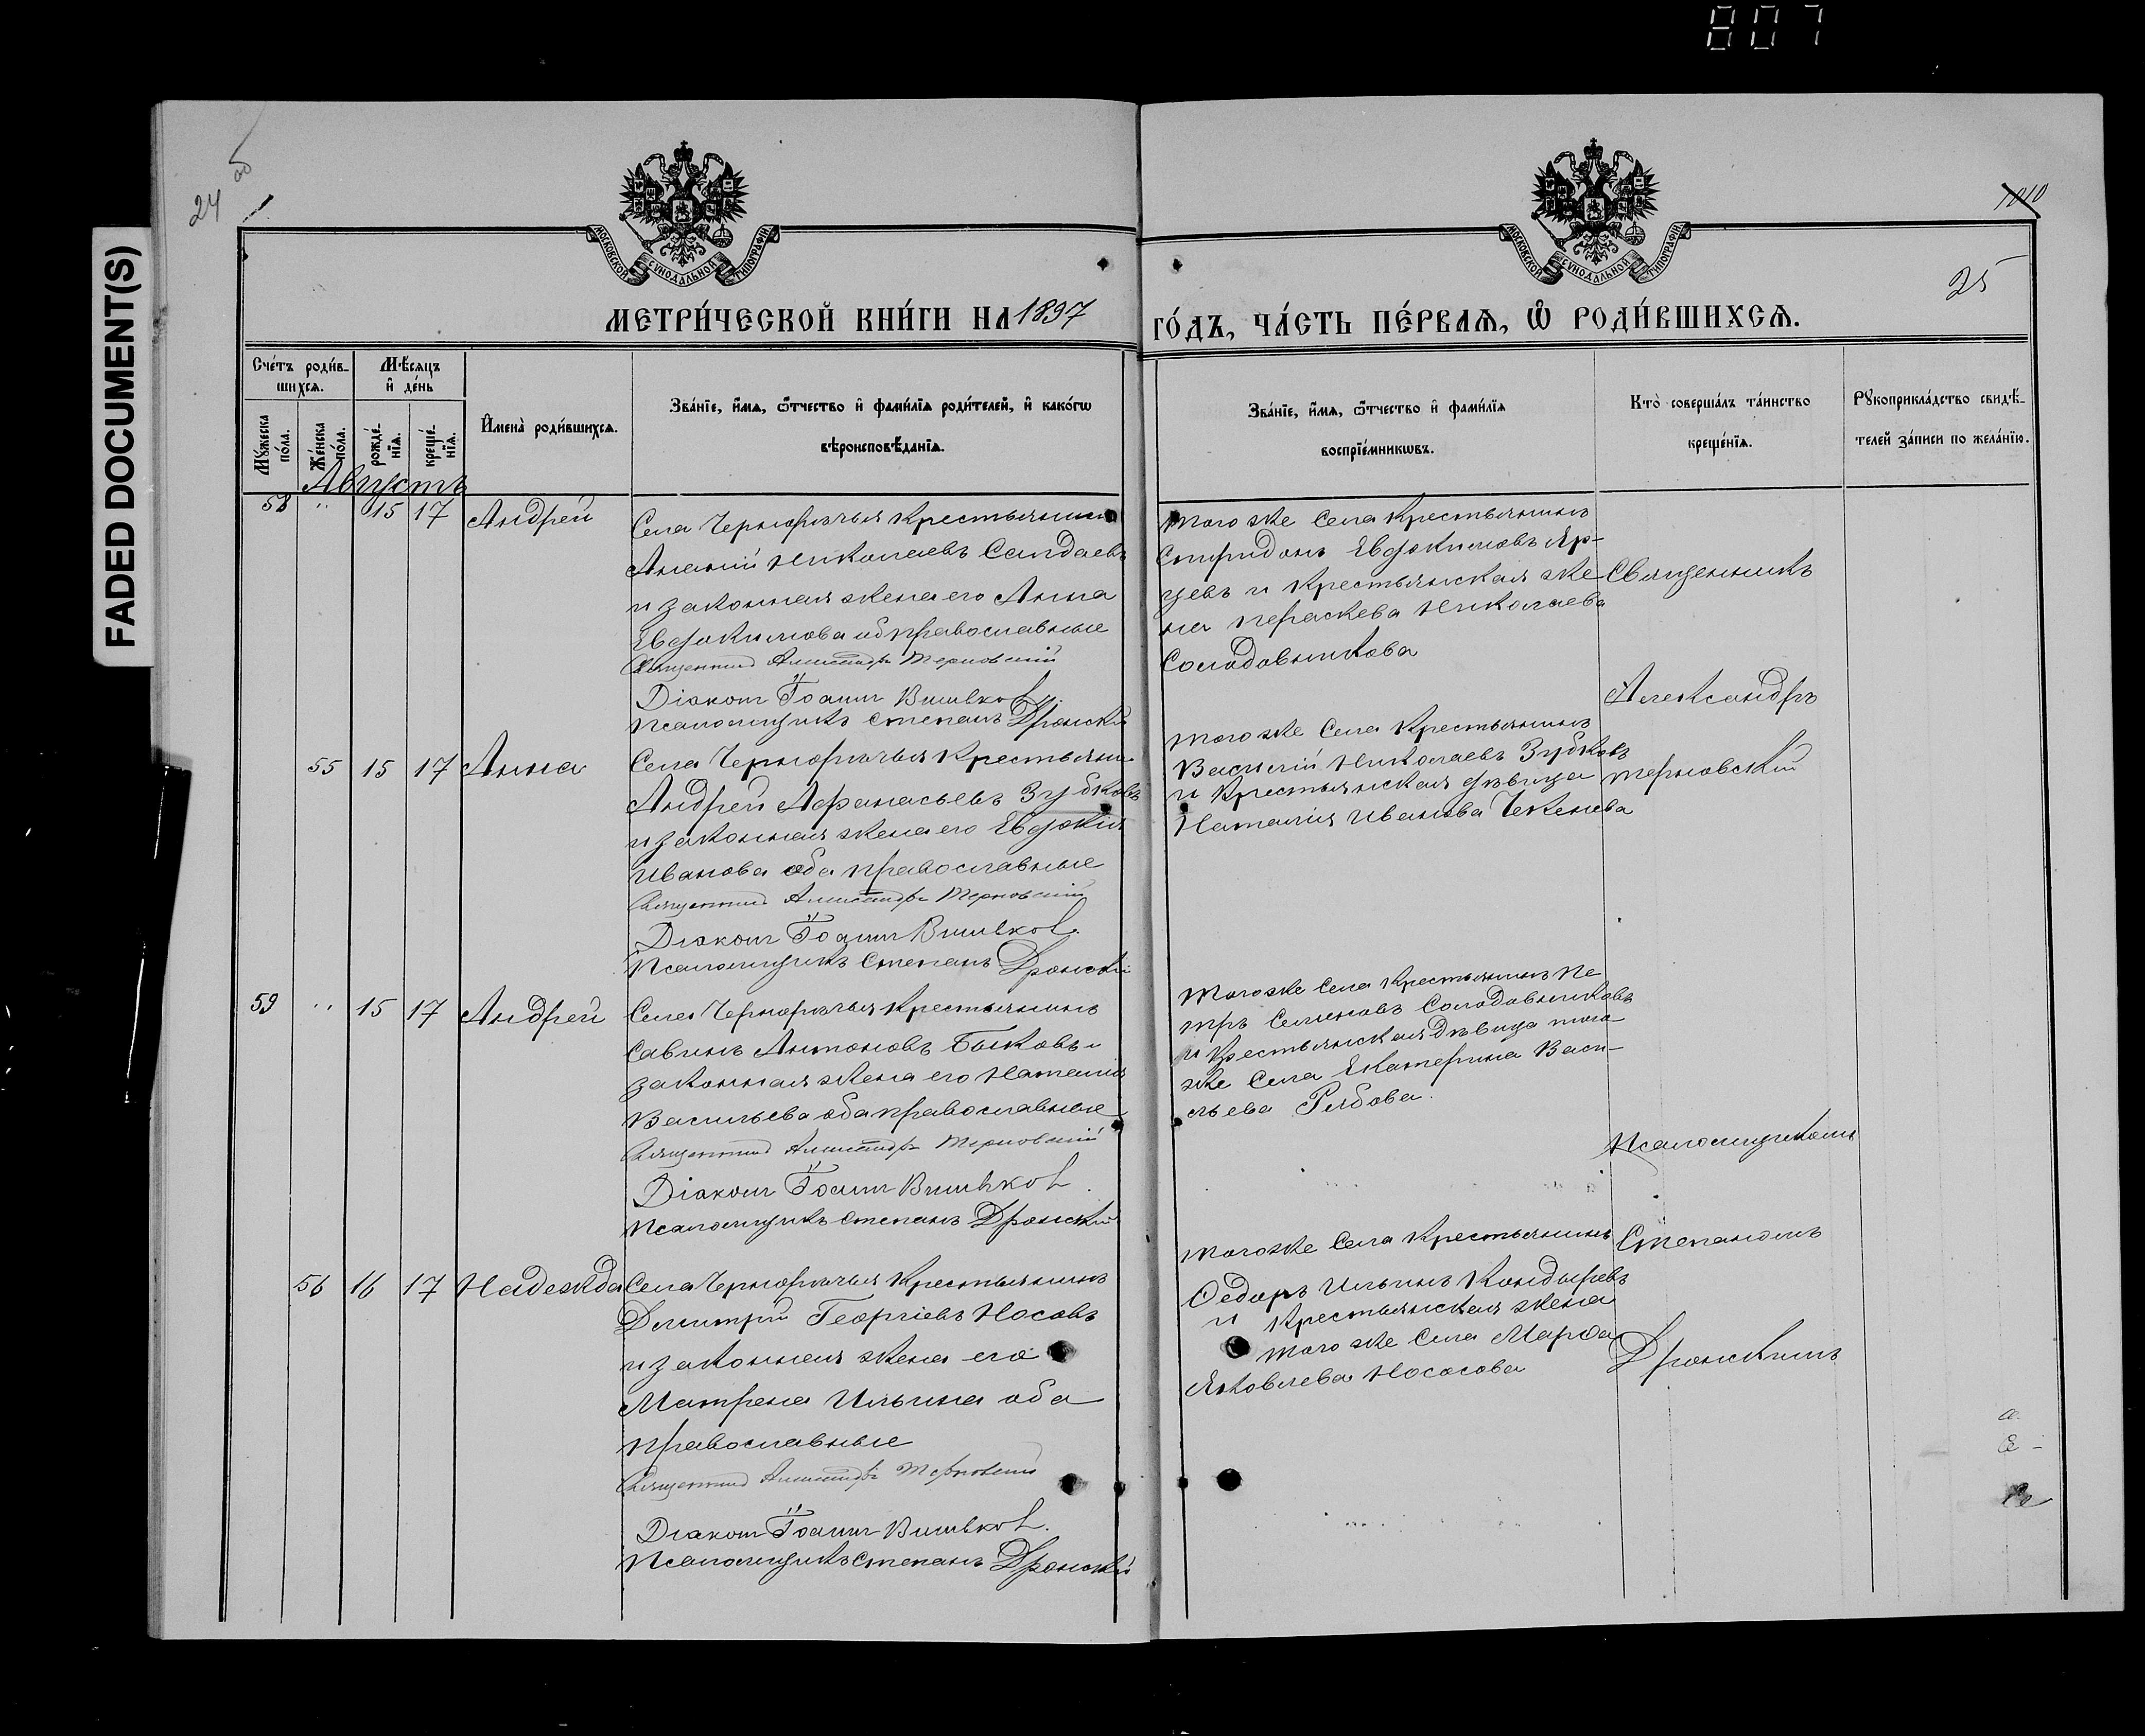 807
FADED DOCUMENT(S)
24 об
1010
25
МОСКОВСКОЙ СѴНОДАЛЬНОЙ ТИПОГРАФІИ
МОСКОВСКОЙ СѴНОДАЛЬНОЙ ТИПОГРАФІИ
МЕТРИ́ЧЕСКОЙ КНИ́ГИ НА 1897 ГО́ДЪ, ЧА́СТЬ ПЕ́РВАѦ, Ѡ҆ РОДИ́ВШИХСѦ.
Сче́тъ роди́в-
шихсѧ.
Мѣ́сѧцъ
и҆ де́нь
Мꙋ́жеска по́ла.
Же́нска по́ла.
рожде́-
нїѧ.
креще́-
нїѧ.
И҆мена̀ роди́вшихсѧ.
Зва́нїе, и҆́мѧ, ѻ҆́тчество и҆ фами́лїѧ роди́телей, и҆ како́гѡ
вѣроисповѣ́данїѧ.
Зва́нїе, и҆́мѧ, ѻ҆́тчество и҆ фами́лїѧ
воспрїе́мникѡвъ.
Кто̀ соверша́лъ та́инство
креще́нїѧ.
Рꙋкоприкла́дство свидѣ́-
телей за́писи по жела́нїю.
Августъ
58 " 15 17 Андрей
Села Чернорѣчья крестьянинъ
Ананій Николаевъ Сандаевъ
и законная жена его Анна
Евдокимова об православные
Священникъ Александръ Терновскій
Діаконъ Іоаннъ Вишвковъ.
Псаломщикъ Степанъ Дронскій
Того же села крестьянинъ
Спиридонъ Евдокимовъ Яр-
цевъ и крестьянская же-
на Параскева Николаева
Солодовникова
Священникъ
Александръ
Терновский
55 15 17 Анна
Села Чернорѣчья крестьянин
Андрей Афанасьевъ Зубковъ
и законная жена его Евдокія
Иванова оба православные
Священникъ Александръ Терновскій
Діаконъ Іоаннъ Вишвковъ.
Псаломщикъ Степанъ Дронскій
Того же села крестьянинъ
Василій Николаевъ Зубковъ
и крестьянская дѣвица
Наталія Иванова Чекенева
59 " 15 17 Андрей
Села Чернорѣчья крестьянинъ
Савинъ Антоновъ Быковъ и
законная жена его Наталия
Васильева оба православные
Священникъ Александръ Терновскій
Діаконъ Іоаннъ Вишвковъ.
Псаломщикъ Степанъ Дронский
Того же села крестьянинъ Пе
тръ Семеновъ Солодовниковъ
и крестьянская дѣвица того
же села Екатерина Васи-
льева Рябова.
Псаломщикомъ
Степаномъ
Дронскимъ
56 16 17 Надежда
Села Чернорѣчья крестьянинъ
Дмитрій Георгіевъ Носовъ
и законная жена его
Матрена Ильина оба
православные
Священникъ Александръ Терновскій
Діаконъ Іоаннъ Вишвковъ.
Псаломщикъ Степанъ Дронскій
Того же села крестьянинъ
Ѳедоръ Ильинъ Кондыревъ
и крестьянская жена
того же села Марѳа
Яковлева Нососова